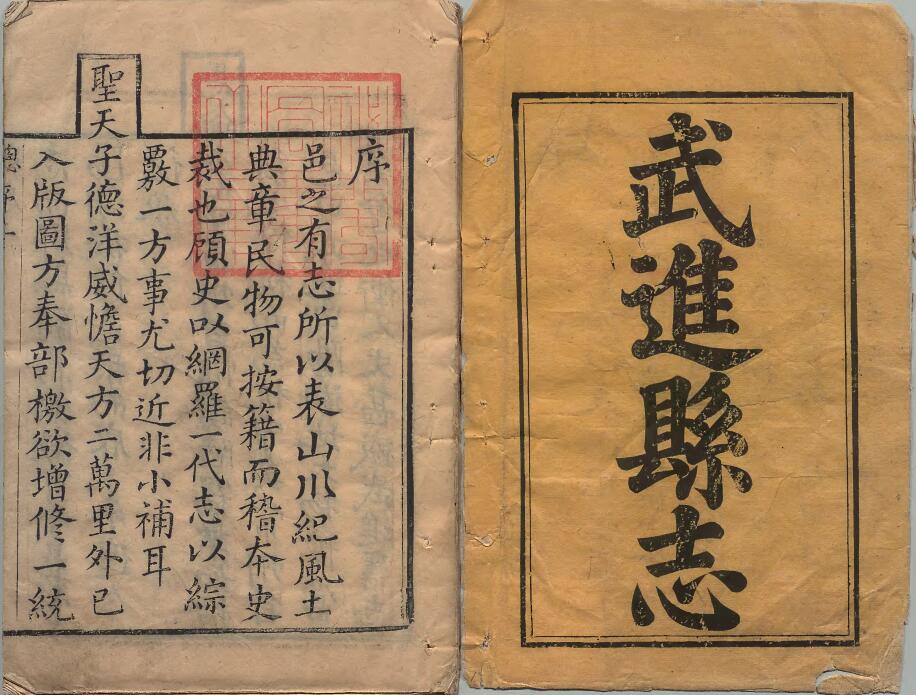 武進縣志
序
邑之有志所以表山川紀風土
典章民物可按籍而稽本史
裁也顧史以網羅一代志以綜
覈一方事尤切近非小補耳
聖天
子德洋威憺天方二萬里外已
入版圖方奉部檄欲增修一統
總序一